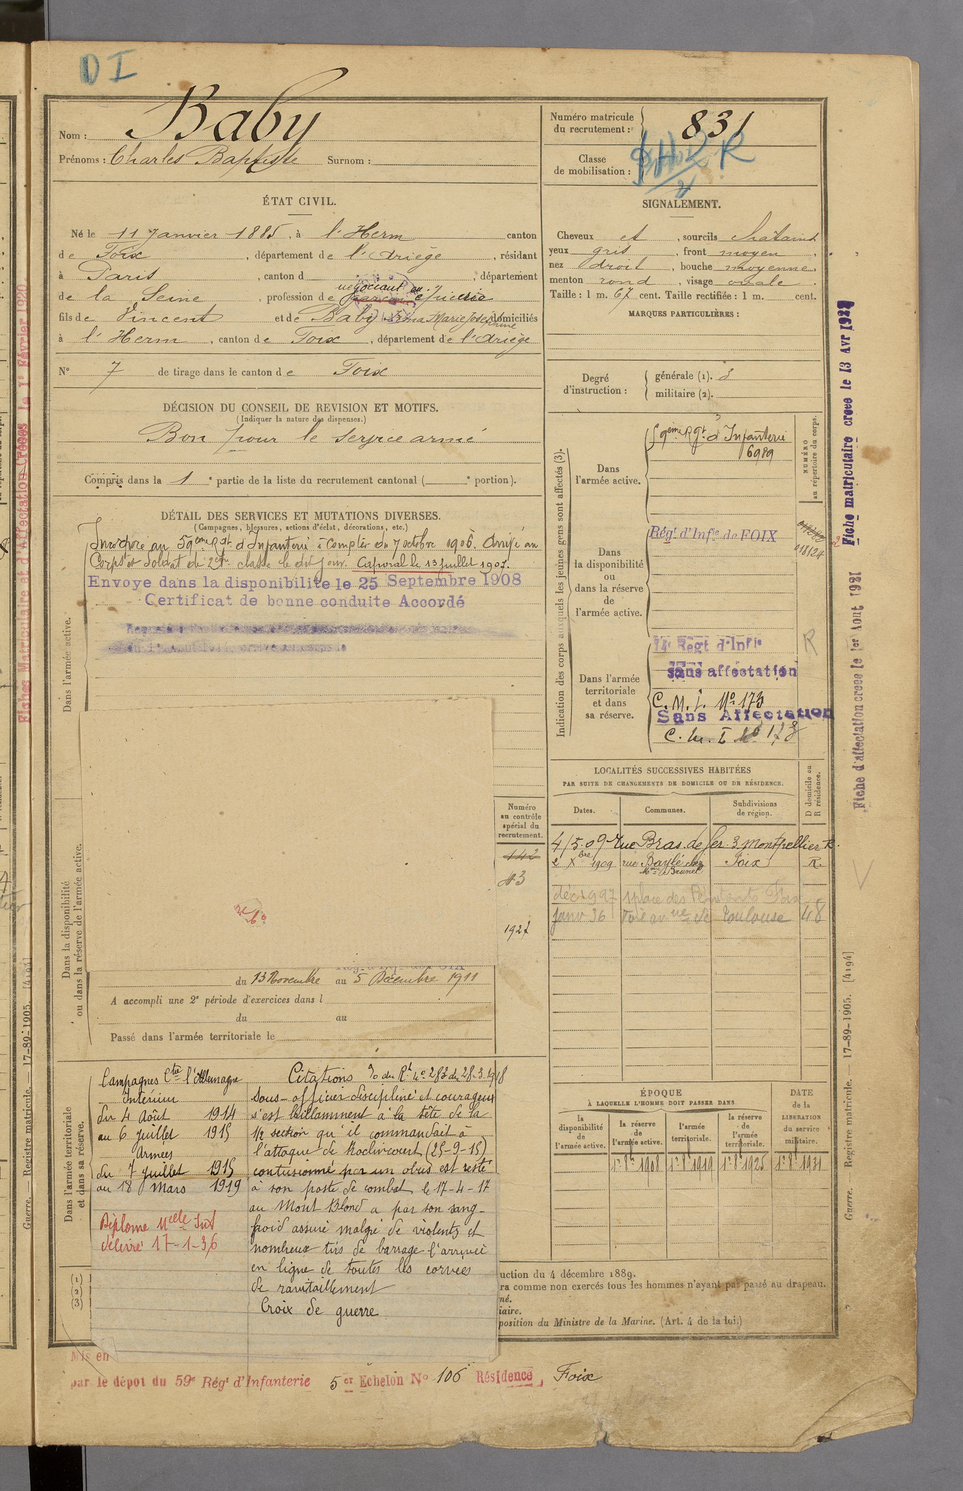 D I
Nom : Baby
Prénoms : Charles Baptiste Surnom :
Numéro matricule du recrutement : 831
Classe de mobilisation :
R
ÉTAT CIVIL.
Né le 11 Janvier 1885, à l'Herm canton
de Foix, département de l'Ariège, résidant
à Paris, canton d , département
de la Seine, profession de négociant
fils de Vincent et de Baby Marie Joséphine domiciliés
à l'Herm, canton de Foix, département de l'Ariège
N° 7 de tirage dans le canton de Foix
SIGNALEMENT.
Cheveux et, sourcils châtains
yeux gris, front moyen,
nez droit, bouche moyenne,
menton rond, visage ovale.
Taille : 1 m. 67 cent. Taille rectifiée : 1 m. cent.
MARQUES PARTICULIÈRES :
Degré d'instruction : générale (1). 3
militaire (2).
DÉCISION DU CONSEIL DE REVISION ET MOTIFS.
(Indiquer la nature des dispenses.)
Bon pour le service armé
Compris dans la 1e partie de la liste du recrutement cantonal ( e portion).
DÉTAIL DES SERVICES ET MUTATIONS DIVERSES.
(Campagnes, blessures, actions d'éclat, décorations, etc.)
Dans l'armée active.
Incorporé au 59ème Rgt d'Infanterie à compter du 7 octobre 1906. Arrivé au
Corps et Soldat de 2e classe le dit jour. Caporal le 13 juillet 1907.
Envoyé dans la disponibilité le 25 Septembre 1908
Certificat de bonne conduite Accordé
Indication des corps auxquels les jeunes gens sont affectés (3).
NUMÉRO au répertoire du corps.
Dans l'armée active.
59ème Rgt d'Infanterie
6989
Dans la disponibilité ou dans la réserve de l'armée active.
Régt d'Infie de FOIX
Dans l'armée territoriale et dans sa réserve.
Regt d'Infie
sans affectation
C. M. I. N° 173
Sans Affectation
C. M. I. N° 173
R
Dans la disponibilité
ou dans la réserve de l'armée active.
Numéro au contrôle spécial du recrutement.
142
43
1927
du 13 Novembre au 5 Décembre 1911
A accompli une 2e période d'exercices dans l
du au
Passé dans l'armée territoriale le
LOCALITÉS SUCCESSIVES HABITÉES
PAR SUITE DE CHANGEMENTS DE DOMICILE OU DE RÉSIDENCE.
Dates. Communes. Subdivisions de région. D domicile ou R résidence.
4/5.09 rue Bras de fer 3 Montpellier R.
2 Xbre 1909 rue Bayle chez Mme Brunet Foix R.
déc 1927 place des
janv 36 Toulouse 48
Dans l'armée territoriale
et dans sa réserve.
Campagnes Cte l'Allemagne
Intérieur
du 4 Août 1914
au 6 juillet 1915
Armées
du 7 juillet 1915
au 18 Mars 1919
Diplôme
délivré 17-1-36
Citations O. du Rt n° 283 du 28.3.1918
Sous-officier discipliné et courageux
s'est brillamment à la tête de la
1/2 section qu'il commandait à
l'attaque de Roclincourt (25-9-15)
contusionné par un obus est resté
à son poste de combat le 17-4-17
au Mont Blond a par son sang-
froid assuré malgré de violents et
nombreux tirs de barrage l'arrivée
en ligne de toutes les corvées
de ravitaillement
Croix de guerre
ÉPOQUE
À LAQUELLE L'HOMME DOIT PASSER DANS
la disponibilité de l'armée active. la réserve de l'armée active. l'armée territoriale. la réserve de l'armée territoriale.
DATE de la LIBÉRATION du service militaire.
1er 8bre 1908 1er 8bre 1919 1er 8bre 1925 1er 8bre 1931
(1)
(2)
(3)
uction du 4 décembre 1889.
ra comme non exercés tous les hommes n'ayant pas passé au drapeau.
né.
iaire.
position du Ministre de la Marine. (Art. 4 de la loi.)
Mis en
par le dépôt du 59e Régt d'Infanterie 5er Echelon N° 106 Résidence, Foix
Fiche matriculaire créée le 13 Avr 1921
Fiche d'affectation créée le 1er Aout 1921
Guerre. — Registre matricule. — 17-89-1905. [4194]
Fiches Matriculaire et d'Affectation Créées le 1er Février 1920
Guerre. — Registre matricule. — 17-89-1905. [4194]